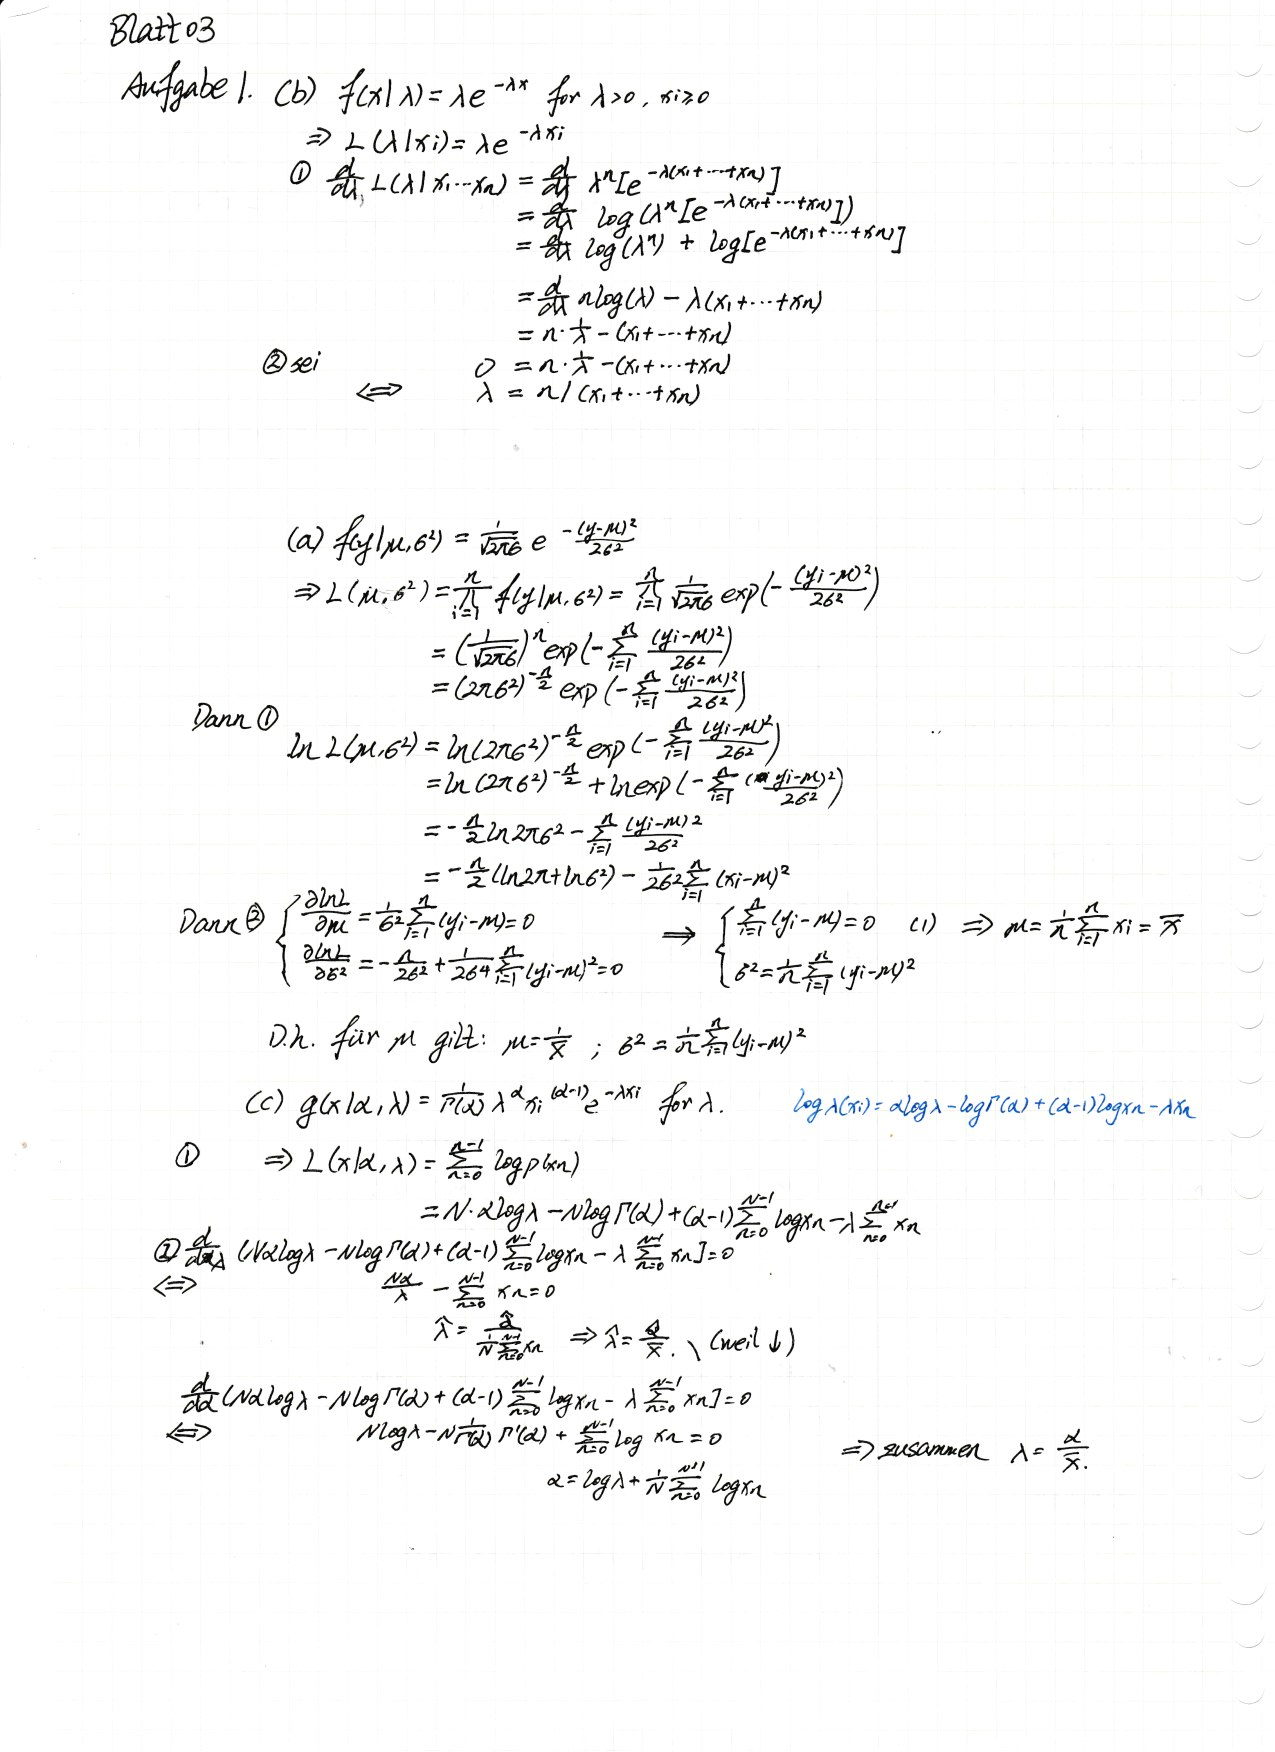 Blatt 03
Aufgabe 1. (b) f(x|λ) = λe^{-λx} for λ>0, xi≥0
⇒ L(λ|xi) = λe^{-λxi}
① d/dλ L(λ|x1…xn) = d/dλ λ^n [e^{-λ(x1+…+xn)}]
= d/dλ log(λ^n [e^{-λ(x1+…+xn)}])
= d/dλ log(λ^n) + log[e^{-λ(x1+…+xn)}]
= d/dλ n log(λ) - λ(x1+…+xn)
= n·1/λ - (x1+…+xn)
② sei 0 = n·1/λ - (x1+…+xn)
⇔ λ = n/(x1+…+xn)
(a) f(y|μ,6²) = 1/√2π6 e^{-(y-μ)²/26²}
⇒ L(μ,6²) = ∏_{i=1}^{n} f(y|μ,6²) = ∏_{i=1}^{n} 1/√2π6 exp(-(yi-μ)²/26²)
= (1/√2π6)^n exp(-∑_{i=1}^{n} (yi-μ)²/26²)
= (2π6²)^{-n/2} exp(-∑_{i=1}^{n} (yi-μ)²/26²)
Dann ①
ln L(μ,6²) = ln(2π6²)^{-n/2} exp(-∑_{i=1}^{n} (yi-μ)²/26²)
= ln(2π6²)^{-n/2} + ln exp(-∑_{i=1}^{n} (yi-μ)²/26²)
= -n/2 ln2π6² - ∑_{i=1}^{n} (yi-μ)²/26²
= -n/2 (ln2π+ln6²) - 1/26² ∑_{i=1}^{n} (xi-μ)²
Dann ② { ∂lnL/∂μ = 1/6² ∑_{i=1}^{n} (yi-μ) = 0 ⇒ { ∑_{i=1}^{n} (yi-μ) = 0 (1) ⇒ μ = 1/n ∑_{i=1}^{n} xi = x̄
∂lnL/∂6² = -n/26² + 1/26⁴ ∑_{i=1}^{n} (yi-μ)² = 0 6² = 1/n ∑_{i=1}^{n} (yi-μ)²
D.h. für μ gilt: μ = 1/x̄ ; 6² = 1/n ∑_{i=1}^{n} (yi-μ)²
(c) g(x|α,λ) = 1/Γ(α) λ^α xi^{(α-1)} e^{-λxi} for λ. log λ(xi) = αlogλ - logΓ(α) + (α-1)logxn - λxn
① ⇒ L(x|α,λ) = ∑_{n=0}^{n-1} log p(xn)
= N·αlogλ - NlogΓ(α) + (α-1) ∑_{n=0}^{N-1} logxn - λ ∑_{n=0}^{n-1} xn
② d/dλ (Nαlogλ - NlogΓ(α) + (α-1) ∑_{n=0}^{N-1} logxn - λ ∑_{n=0}^{N-1} xn] = 0
⇔ Nα/λ - ∑_{n=0}^{N-1} xn = 0
λ̂ = α̂/(1/N ∑_{n=0}^{N-1} xn) ⇒ λ̂ = α̂/x̄. \ (weil ↓)
d/dα (Nαlogλ - NlogΓ(α) + (α-1) ∑_{n=0}^{N-1} logxn - λ ∑_{n=0}^{N-1} xn] = 0
⇔ Nlogλ - N 1/Γ(α) Γ'(α) + ∑_{n=0}^{N-1} log xn = 0 ⇒ zusammen λ = α/x̄.
α = logλ + 1/N ∑_{n=0}^{N-1} logxn